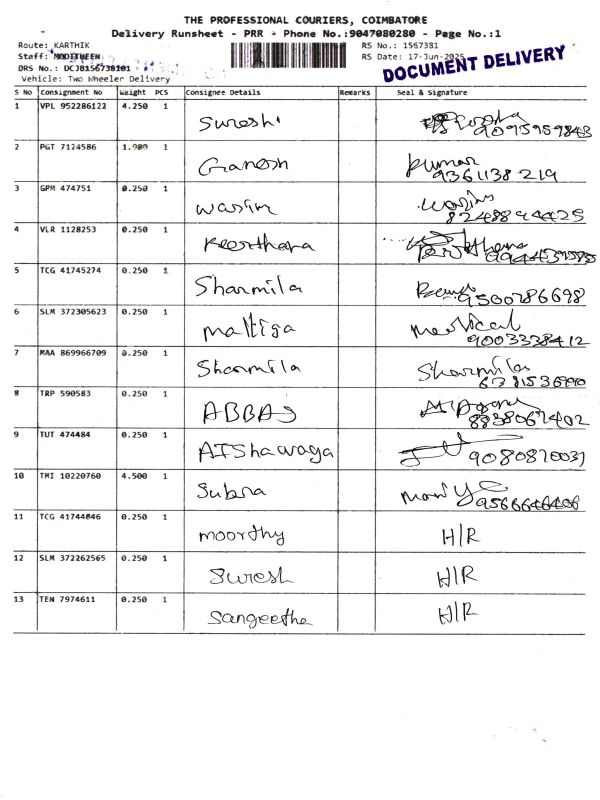 THE PROFESSIONAL COURIERS, COIMBATORE
Delivery Runsheet - PRR - Phone No.:9047080280 - Page No.:1
Route: KARTHIK RS No.: 1567381
Staff: MODITHEEN RS Date: 17-Jun-2025
DRS No.: DCJB156738101
Vehicle: Two Wheeler Delivery
DOCUMENT DELIVERY
S No Consignment No Weight PCS Consignee Details Remarks Seal & Signature
1 VPL 952286122 4.250 1 Suresh 9095959843
2 PGT 7124586 1.900 1 Ganesh Kumar
9361138219
3 GPM 474751 0.250 1 Wasim Wasim
8248894425
4 VLR 1128253 0.250 1 Keerthana
5 TCG 41745274 0.250 1 Sharmila 9500786698
6 SLM 372305623 0.250 1 Mattiga
9003338412
7 MAA 869966709 0.250 1 Sharmila Sharmila
8 TRP 590583 0.250 1 ABBAS
9 TUT 474484 0.250 1 AIShwaraga
10 TMI 10220760 4.500 1 Subra
9566646406
11 TCG 41744846 0.250 1 moorthy H/R
12 SLM 372262565 0.250 1 Suresh H/R
13 TEN 7974611 0.250 1 Sangeetha H/R